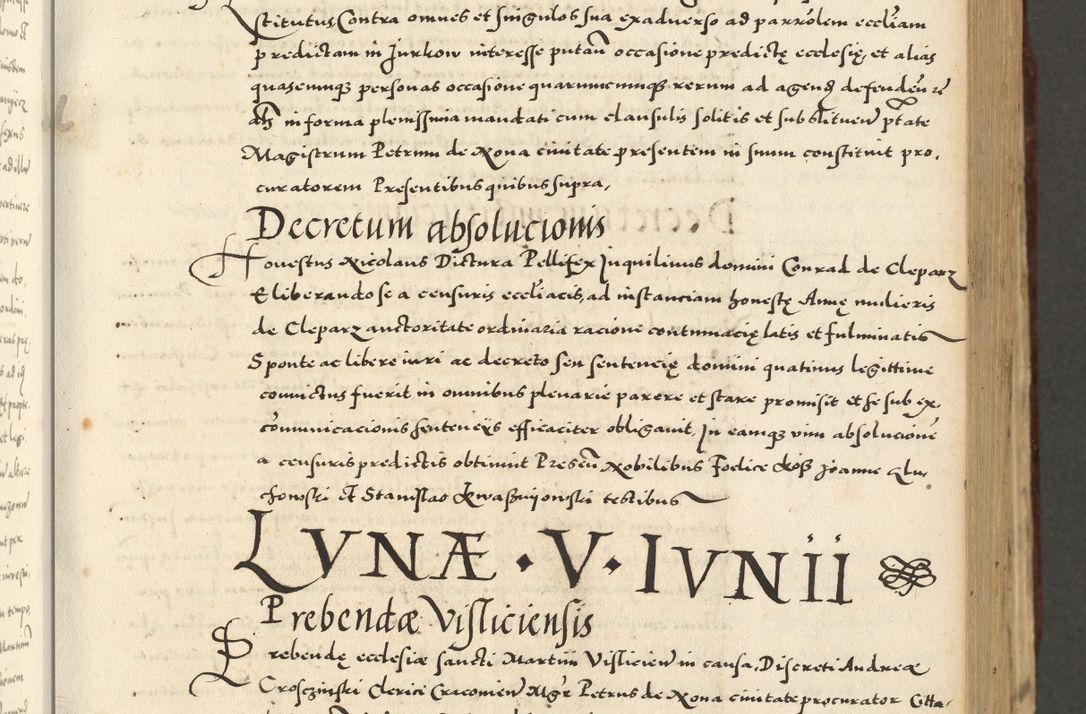 stitutus Contra omnes et singulos sua ex adverso ad parrolem eccl̃iam
predictam in Jurkow interesse putan̄ occasione predictę ecclesię, et alias
quascumqz personas occasione quarumcumqz rerum ad agend defendeń
in forma plenissima mandati cum clausulis solitis et substituen̄ ptate
Magistrum Petrum de Nova civitate presentem in suum constituit pro,
curatorem Presentibus quibus supra,
Decretum absolucionis
Honestus Nicolaus Dictura Pellifex Inquilinus domini Conrad de Cleparz
Eliberando se a censuris eccl̃iacis, ad instanciam honestę Annę mulieris
de Cleparz auctoritate ordinaria racione contumacię latis et fulminatis
Sponte ac libere iuri ac decreto seu sentencię domini quatinus legittime
convictus fuerit in omnibus plenarie parere et stare promisit et se sub ex,
cōmunicacionis sentencys efficaciter obligavit, In eamqz vim absolucionē
a censuris predictis obtinuit Presen̄ Nobilibus Foelice Joanne
chowski et Stanislao testibus
LVNÆ · V · IVNII
Prebendæ Visliciensis
Prebendę ecclesiæ sancti Martini Vislicien̄ in causa, Discreti Andreæ
Crosczinski Clerici Cracovien̄ Mgr Petrus de Nova civitate procurator Citta,